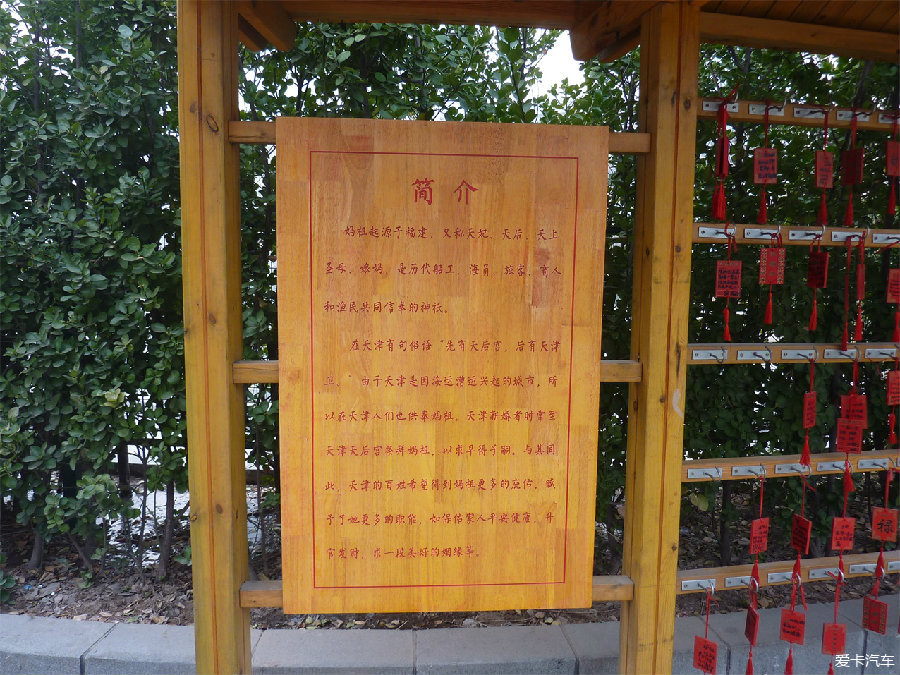 简介
妈祖起源于福建，又称天妃、天后、天上
圣母、娘妈，是历代船工、海员、旅客、商人
和渔民共同信奉的神祇。
在天津有句俗语“先有天后宫，后有天津
卫。”由于天津是因海运漕运兴起的城市，所
以在天津人们也供奉妈祖。天津新婚者时常至
天津天后宫参拜妈祖，以求早得子嗣。与其同
此，天津的百姓希望得到妈祖更多的庇佑，赋
予了她更多的职能，如保佑家人平安健康、升
官发财、求一段美好的姻缘等。
福
爱卡汽车